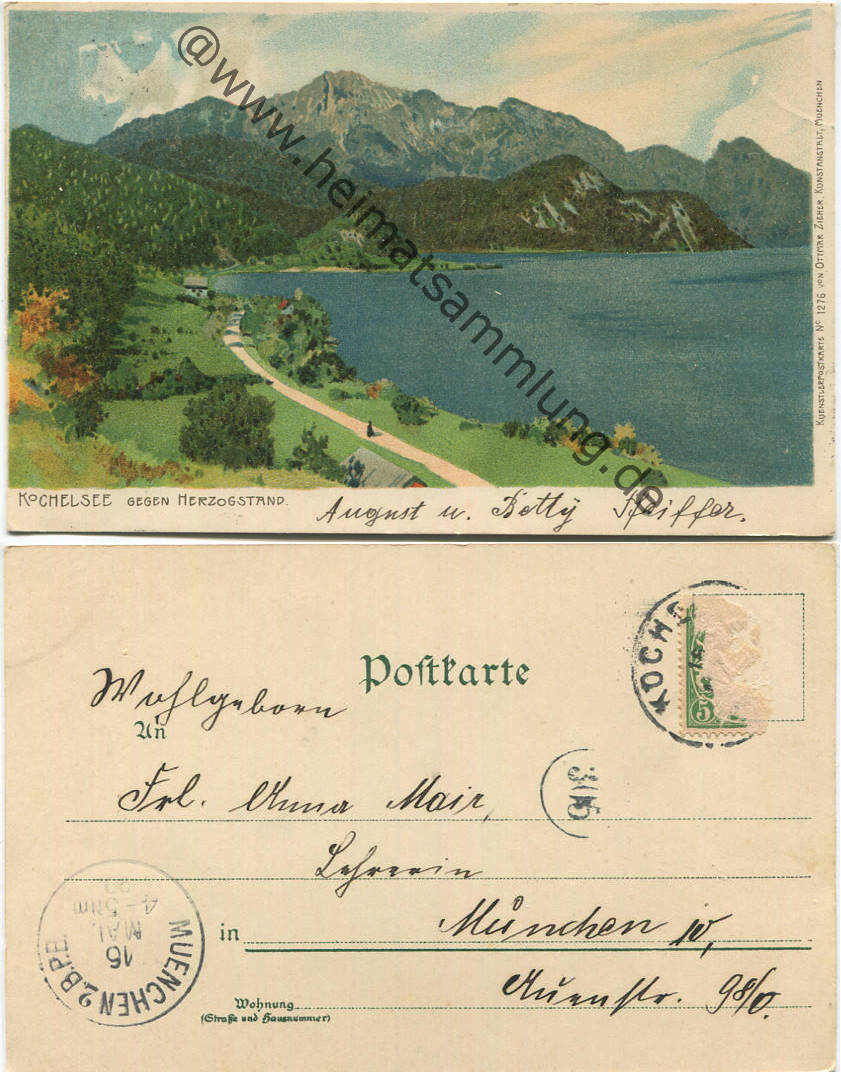 @www.heimatsammlung.de
KUENSTLERPOSTKARTE No 1276 VON OTTMAR ZIEHER, KONSTANSTALT, MUENCHEN
KOCHELSEE GEGEN HERZOGSTAND.
August u. Betty Pfeiffer.
Postkarte
Wohlgeborn
An
Frl. Anna Mair,
Lehrerin
in München IV,
Auenstr. 98/0.
Wohnung
(Straße und Hausnummer)
KOCHE
5
MUENCHEN 2 B.P.B.
16
MAI
4-5 Nm